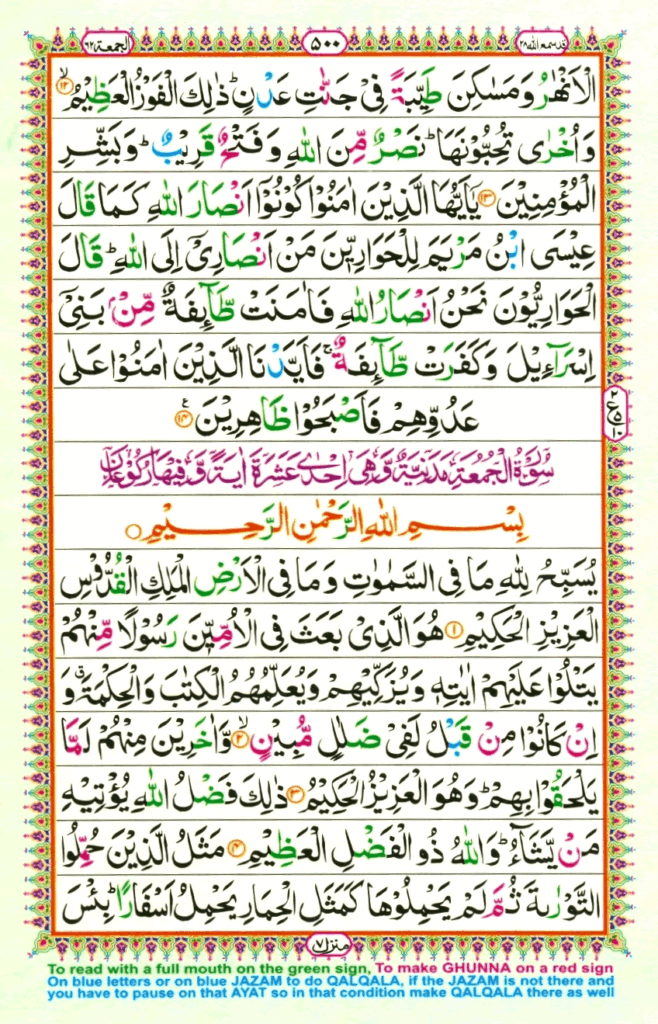 قد سمع الله ٢٨ ٥٠٠ الجمعة ٦٢
الْاَنْهٰرُ وَمَسٰكِنَ طَيِّبَةً فِیْ جَنّٰتِ عَدْنٍ ؕ ذٰلِكَ الْفَوْزُ الْعَظِیْمُ ۙ۱۲
وَاُخْرٰی تُحِبُّوْنَهَا ؕ نَصْرٌ مِّنَ اللّٰهِ وَفَتْحٌ قَرِیْبٌ ؕ وَبَشِّرِ
الْمُؤْمِنِیْنَ ۱۳ یٰۤاَیُّهَا الَّذِیْنَ اٰمَنُوْا كُوْنُوْۤا اَنْصَارَ اللّٰهِ كَمَا قَالَ
عِیْسَی ابْنُ مَرْیَمَ لِلْحَوَارِیّٖنَ مَنْ اَنْصَارِیْۤ اِلَی اللّٰهِ ؕ قَالَ
الْحَوَارِیُّوْنَ نَحْنُ اَنْصَارُ اللّٰهِ فَاٰمَنَتْ طَّآىِٕفَةٌ مِّنْۢ بَنِیْۤ
اِسْرَآءِیْلَ وَكَفَرَتْ طَّآىِٕفَةٌ ۚ فَاَیَّدْنَا الَّذِیْنَ اٰمَنُوْا عَلٰی
عَدُوِّهِمْ فَاَصْبَحُوْا ظَاهِرِیْنَ ۱۴ ع
٢ ع ٥ ١٠
سُوْرَةُ الْجُمُعَةِ مَدَنِیَّةٌ وَّهِیَ اِحْدٰی عَشَرَةَ اٰیَةً وَّفِیْهَا رُكُوْعَانِ
بِسْمِ اللّٰهِ الرَّحْمٰنِ الرَّحِیْمِ
یُسَبِّحُ لِلّٰهِ مَا فِی السَّمٰوٰتِ وَمَا فِی الْاَرْضِ الْمَلِكِ الْقُدُّوْسِ
الْعَزِیْزِ الْحَكِیْمِ ۱ هُوَ الَّذِیْ بَعَثَ فِی الْاُمِّیّٖنَ رَسُوْلًا مِّنْهُمْ
یَتْلُوْا عَلَیْهِمْ اٰیٰتِهٖ وَیُزَكِّیْهِمْ وَیُعَلِّمُهُمُ الْكِتٰبَ وَالْحِكْمَةَ ۗ وَ
اِنْ كَانُوْا مِنْ قَبْلُ لَفِیْ ضَلٰلٍ مُّبِیْنٍ ۙ۲ وَّاٰخَرِیْنَ مِنْهُمْ لَمَّا
یَلْحَقُوْا بِهِمْ ؕ وَهُوَ الْعَزِیْزُ الْحَكِیْمُ ۳ ذٰلِكَ فَضْلُ اللّٰهِ یُؤْتِیْهِ
مَنْ یَّشَآءُ ؕ وَاللّٰهُ ذُو الْفَضْلِ الْعَظِیْمِ ۴ مَثَلُ الَّذِیْنَ حُمِّلُوا
التَّوْرٰىةَ ثُمَّ لَمْ یَحْمِلُوْهَا كَمَثَلِ الْحِمَارِ یَحْمِلُ اَسْفَارًا ؕ بِئْسَ
منزل ٧
To read with a full mouth on the green sign, To make GHUNNA on a red sign
On blue letters or on blue JAZAM to do QALQALA, if the JAZAM is not there and
you have to pause on that AYAT so in that condition make QALQALA there as well